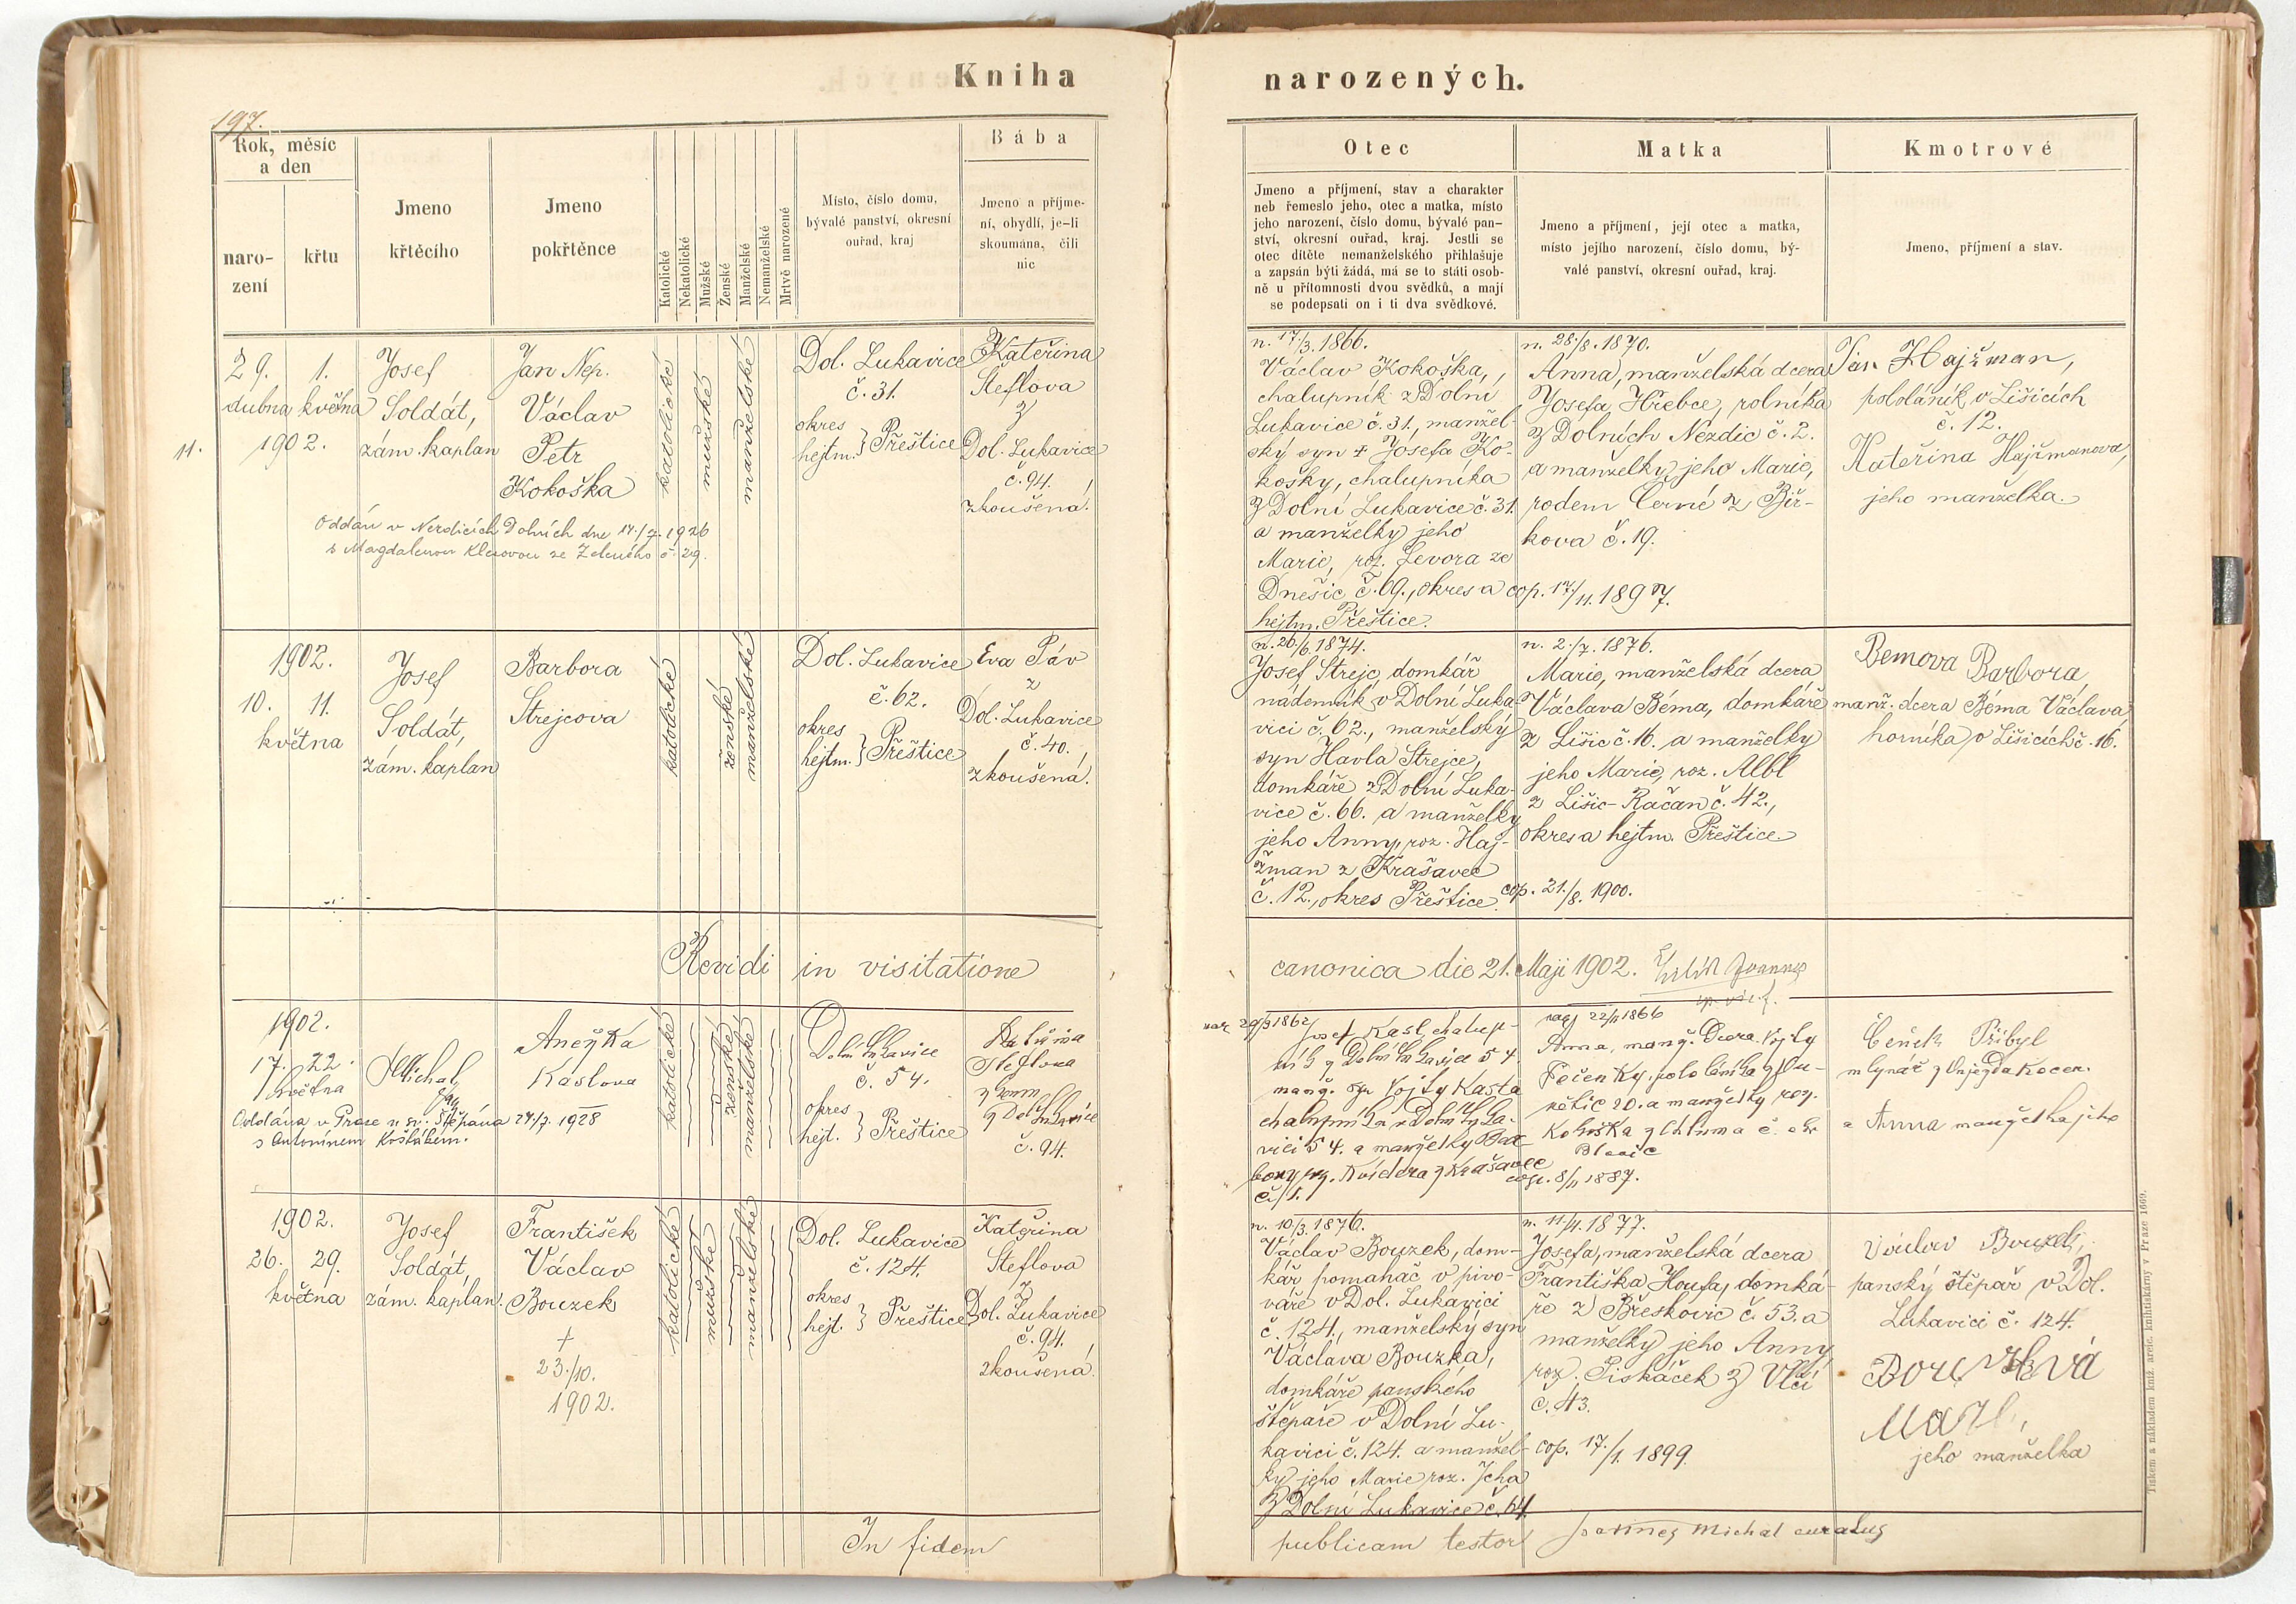 Kniha
narozených.
197.
Rok, měsíc
a den
naro-
zení
křtu
Jmeno
křtěcího
Jmeno
pokřtěnce
Katolické
Nekatolické
Mužské
Ženské
Manželské
Nemanželské
Mrtvě narozené
Místo, číslo domu,
bývalé panství, okresní
ouřad, kraj
Bába
Jmeno a příjme-
ní, obydlí, je-li
skoumána, čili
nic
Otec
Jmeno a příjmení, stav a charakter
neb řemeslo jeho, otec a matka, místo
jeho narození, číslo domu, bývalé pan-
ství, okresní ouřad, kraj. Jestli se
otec dítěte nemanželského přihlašuje
a zapsán býti žádá, má se to státi osob-
ně u přítomnosti dvou svědků, a mají
se podepsati on i ti dva svědkové.
Matka
Jmeno a příjmení, její otec a matka,
místo jejího narození, číslo domu, bý-
valé panství, okresní ouřad, kraj.
Kmotrové
Jmeno, příjmení a stav.
11.
29. 1.
dubna května
1902.
Josef
Soldát,
zám. kaplan
Jan Nep.
Václav
Petr
Kokoška
katolické
mužské
manželské
Dol. Lukavice
č. 31.
okres
hejtm. } Přeštice
Kateřina
Šteflova
z
Dol. Lukavice
č. 94.,
zkoušená.
Oddán v Nezdicích Dolních dne 14./7. 1926
s Magdalenou Klesovou ze Zeleného č. 29.
n. 17/3. 1866.
Václav Kokoška,
chalupník z Dolní
Lukavice č. 31., manžel-
ský syn + Josefa Ko-
košky, chalupníka
z Dolní Lukavice č. 31.
a manželky jeho
Marie, roz. Levora ze
Dnešic č. 69., okres a
hejtm. Přeštice.
n. 28./8. 1870.
Anna, manželská dcera
Josefa Hřebce, rolníka
z Dolních Nezdic č. 2.
a manželky jeho Marie,
rodem Černé z Biř-
kova č. 19.
cop. 17./11. 1897.
Jan Hajžman,
pololáník v Lišicích
č. 12.
Kateřina Hajžmanova,
jeho manželka.
1902.
10. 11.
května
Josef
Soldát,
zám. kaplan
Barbora
Strejcova
katolické
ženské
manželské
Dol. Lukavice
č. 62.
okres
hejtm. } Přeštice
Eva Páv
z
Dol. Lukavice
č. 40.,
zkoušená.
n. 26/6. 1874.
Josef Strejc, domkář
nádenník v Dolní Luka-
vici č. 62., manželský
syn Havla Strejce,
domkáře z Dolní Luka-
vice č. 66. a manželky
jeho Anny, roz. Haj-
žman z Krašavec
č. 12., okres Přeštice.
n. 2./7. 1876.
Marie, manželská dcera
Václava Béma, domkáře
z Lišic č. 16. a manželky
jeho Marie, roz. Albl
z Lišic-Račan č. 42.,
okres a hejtm. Přeštice
cop. 21./8. 1900.
Bemova Barbora
manž. dcera Béma Václava
horníka v Lišicích č. 16.
Revidi in visitatione
canonica die 21. Maji 1902.
1902.
17. 22.
května
Michal
Anežka
Káslova
katolické
ženské
manželské
Dolní Lukavice
č. 54.
okres
hejt. } Přeštice
Kateřina
Šteflova
z Dol. Lukavice
č. 94.
Oddána v Praze u sv. Štěpána 24./7. 1928
s Antonínem Košťálem.
nar. 29/3 1862
Josef Kasl, chalup-
ník z Dolní Lukavice 54.
manž. syn Vojty Kasla
chalupníka v Dolní Luka-
vici 54. a manželky Bar-
bory roz. Kvídera z Krašavec
č. 1.
nar. 22/11 1866
Anna, manž. dcera Vojty
cop. 8/11 1887.
Čeněk Přibyl
mlynář
a Anna manželka jeho
1902.
26. 29.
května
Josef
Soldát,
zám. kaplan.
František
Václav
Bouzek
+
23./10.
1902.
katolické
mužské
manželské
Dol. Lukavice
č. 124.
okres
hejt. } Přeštice
Kateřina
Šteflova
z
Dol. Lukavice
č. 94.
zkoušená.
n. 10/3. 1876.
Václav Bouzek, dom-
kář pomahač v pivo-
váře v Dol. Lukavici
č. 124., manželský syn
Václava Bouzka,
domkáře panského
štěpaře v Dolní Lu-
kavici č. 124. a manžel-
ky jeho Marie roz. Jcha
z Dolní Lukavice č. 64.
n. 11/11. 1877.
Josefa, manželská dcera
Františka Houfa, domká-
ře z Břeskovic č. 53. a
manželky jeho Anny
roz. Piskáček z Vlčí
č. 43.
cop. 17./1. 1899.
Václav Bouzek,
panský štěpař v Dol.
Lukavici č. 124.
Bouzková
jeho manželka
In fidem
publicam testor Joannes Michal curatus
Tiskem a nákladem kníž. arcic. knihtiskárny v Praze 1669.